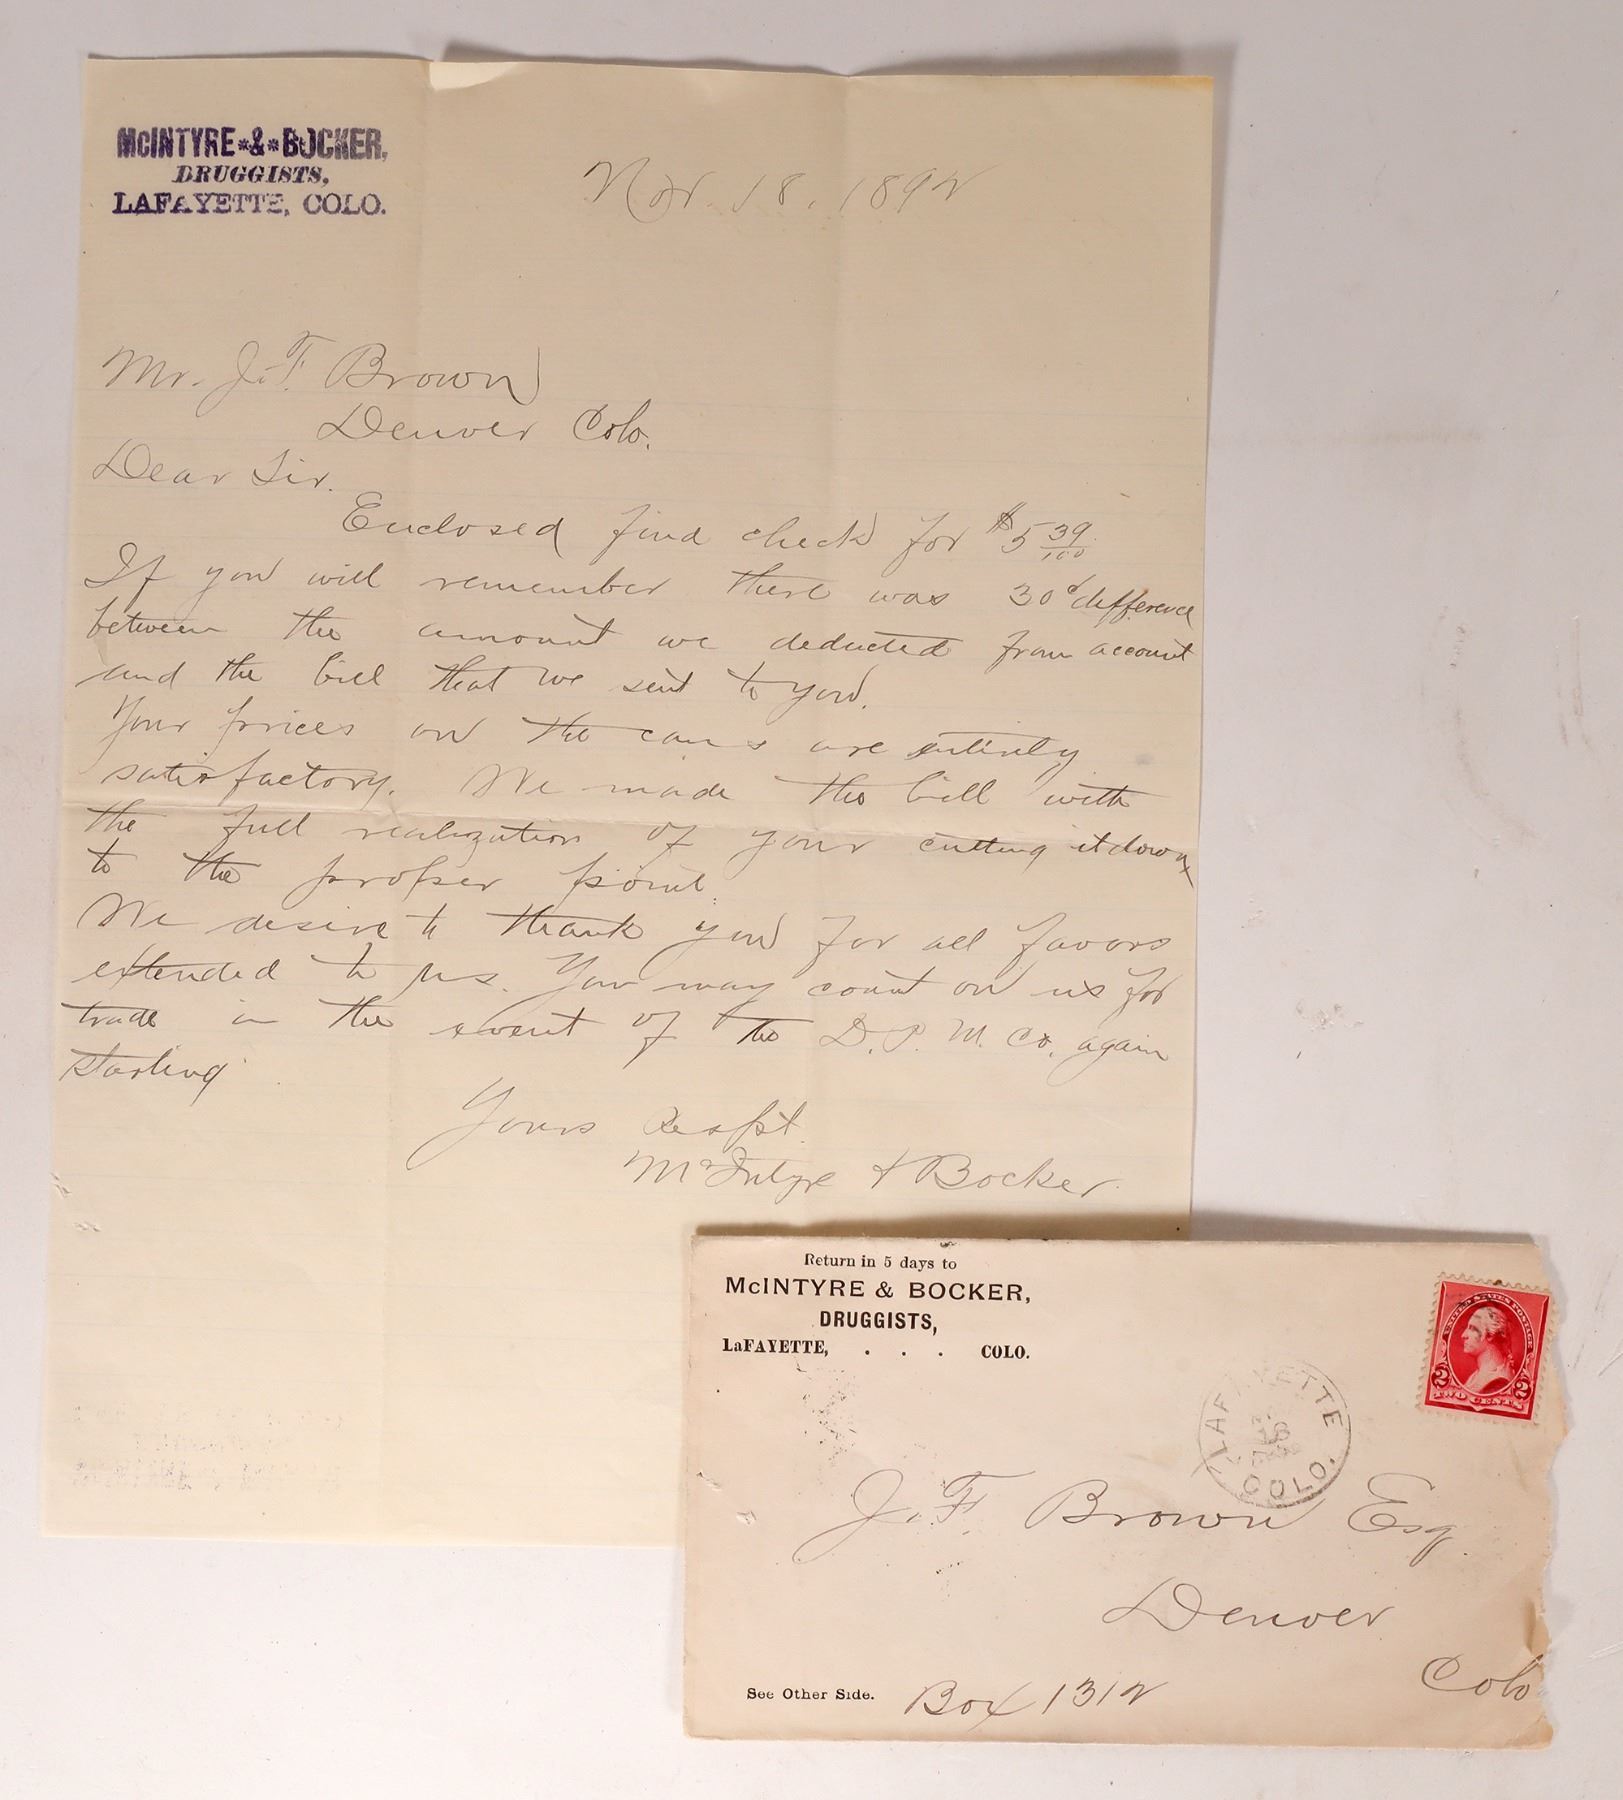 McINTYRE*&*BOCKER,
DRUGGISTS,
LAFAYETTE, COLO.
Nov. 18. 1892
Mr. J. F. Brown
Denver Colo.
Dear Sir.
Enclosed find check for $5 39/100
If you will remember there was 30¢ difference
between the amount we deducted from account
and the bill that we sent to you.
Your prices on the cans are entirely
satisfactory. We made the bill with
the full realization of your cutting it down
to the proper point.
We desire to thank you for all favors
extended to us. You may count on us for
trade in the event of the D. P. M. Co. again
starting
Yours Respt.
McIntyre & Bocker.
Return in 5 days to
McINTYRE & BOCKER,
DRUGGISTS,
LaFAYETTE, . . . COLO.
UNITED STATES POSTAGE
2 2
TWO CENTS
LAFAYETTE
COLO.
J. F. Brown Esq.
Denver
Colo
See Other Side.
Box 1312